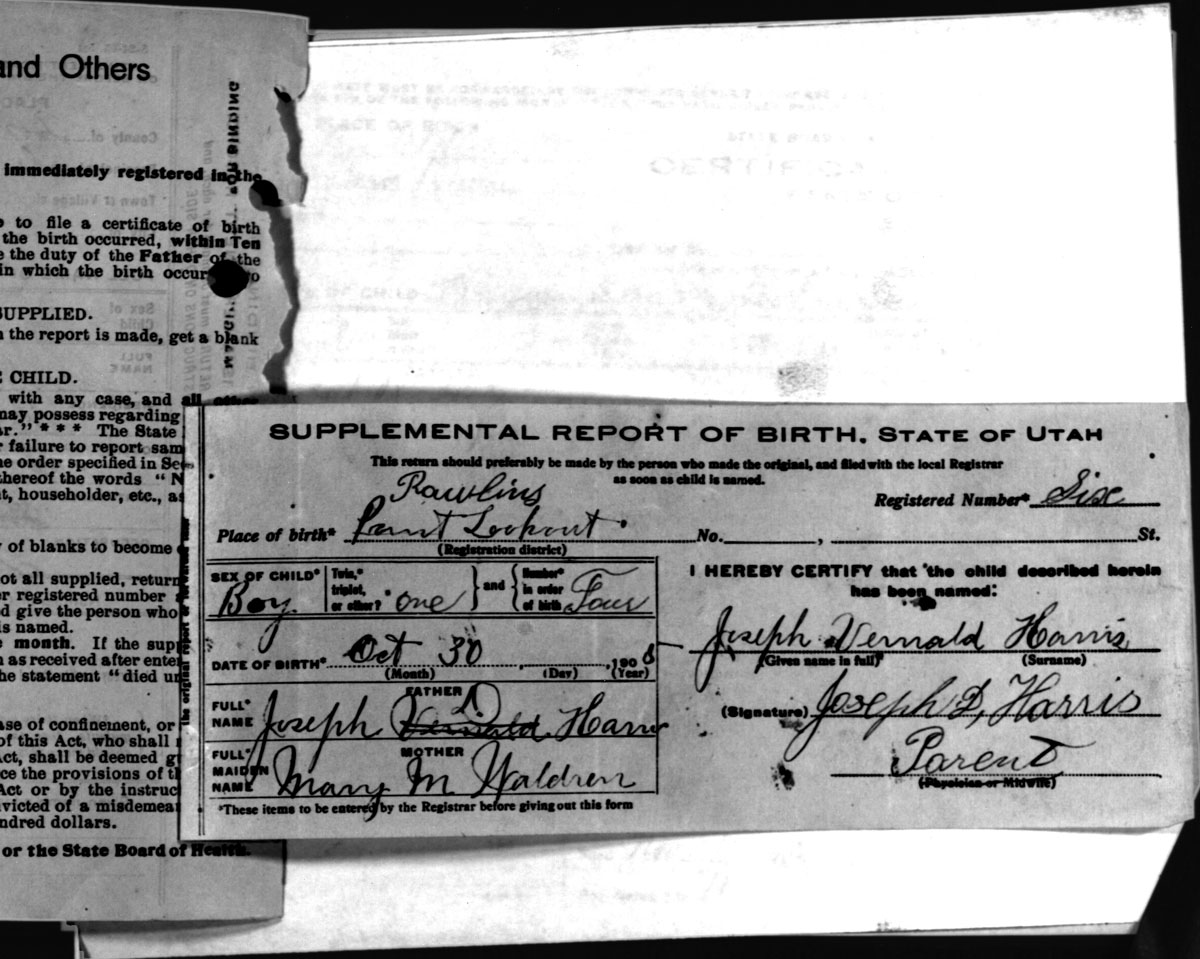 and Others
immediately registered in the
to file a certificate of birth
the birth occurred, within Ten
e the duty of the Father of the
in which the birth occur
SUPPLIED.
the report is made, get a blank
CHILD.
with any case, and all other
may possess regarding
ar." * * * The State
r failure to report sam
he order specified in Sec
thereof the words "N
t, householder, etc., as
y of blanks to become
ot all supplied, return
r registered number
d give the person who
s named.
month. If the supp
n as received after enter
he statement "died un
ase of confinement, or
of this Act, who shall
Act, shall be deemed g
ce the provisions of th
Act or by the instruc
victed of a misdemea
ndred dollars.
or the State Board of Health.
FOR BINDING
SUPPLEMENTAL REPORT OF BIRTH, STATE OF UTAH
This return should preferably be made by the person who made the original, and filed with the local Registrar
as soon as child is named.
Rawlins
Registered Number* Six
Place of birth* Point Lookout No. , St.
(Registration district)
SEX OF CHILD* Boy
Twin,* triplet, or other? one } and { Number* in order of birth Four
DATE OF BIRTH* Oct 30, 1908
(Month) (Day) (Year)
FATHER
FULL* NAME Joseph D Vernald Harris
MOTHER
FULL* MAIDEN NAME Mary M Waldren
*These items to be entered by the Registrar before giving out this form
I HEREBY CERTIFY that the child described herein
has been named:
Joseph Vernald Harris
(Given name in full) (Surname)
(Signature) Joseph D, Harris
Parent
(Physician or Midwife)